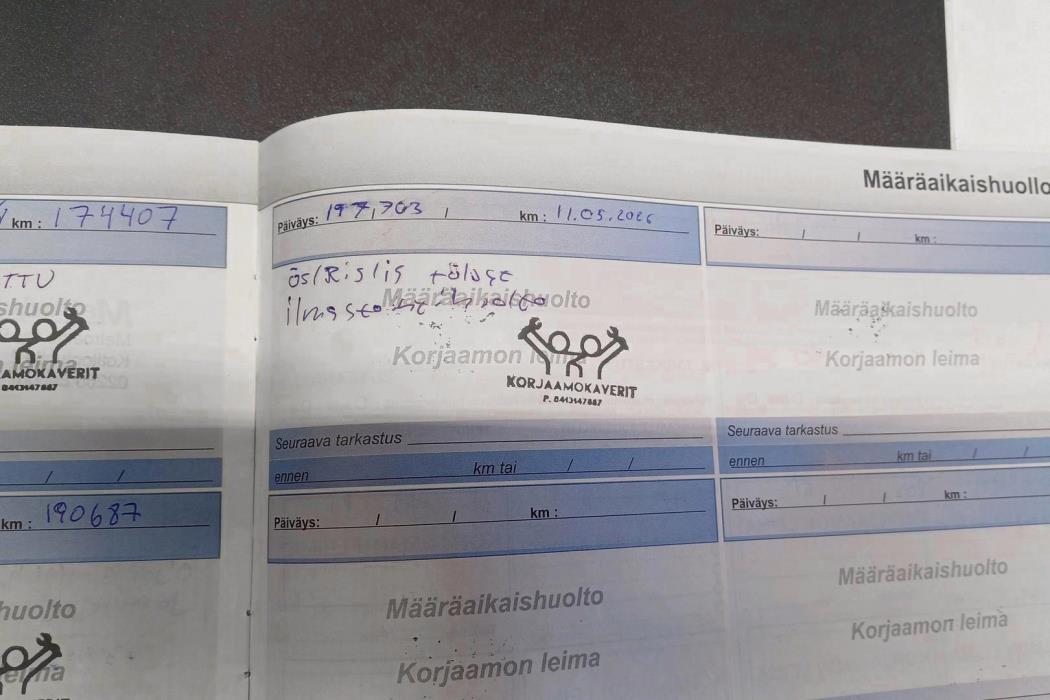 Määräaikaishuollo
km : 174407
TTU
shuolto
AMOKAVERIT
0443147887
km : 190687
huolto
eima
Päiväys: 197,703 / km : 11.05.2026
Määräaikaishuolto
Korjaamon leima
KORJAAMOKAVERIT
P. 0443147887
Seuraava tarkastus
ennen km tai / /
Päiväys: / / km :
Määräaikaishuolto
Korjaamon leima
Päiväys: / / km :
Määräaikaishuolto
Korjaamon leima
Seuraava tarkastus
ennen km tai / /
Päiväys: / / km :
Määräaikaishuolto
Korjaamon leima